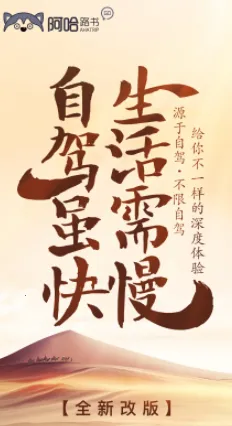 阿哈路书
AHATRIP
GO
生活需慢
自驾虽快
给你不一样的深度体验
源于自驾·不限自驾
【全新改版】